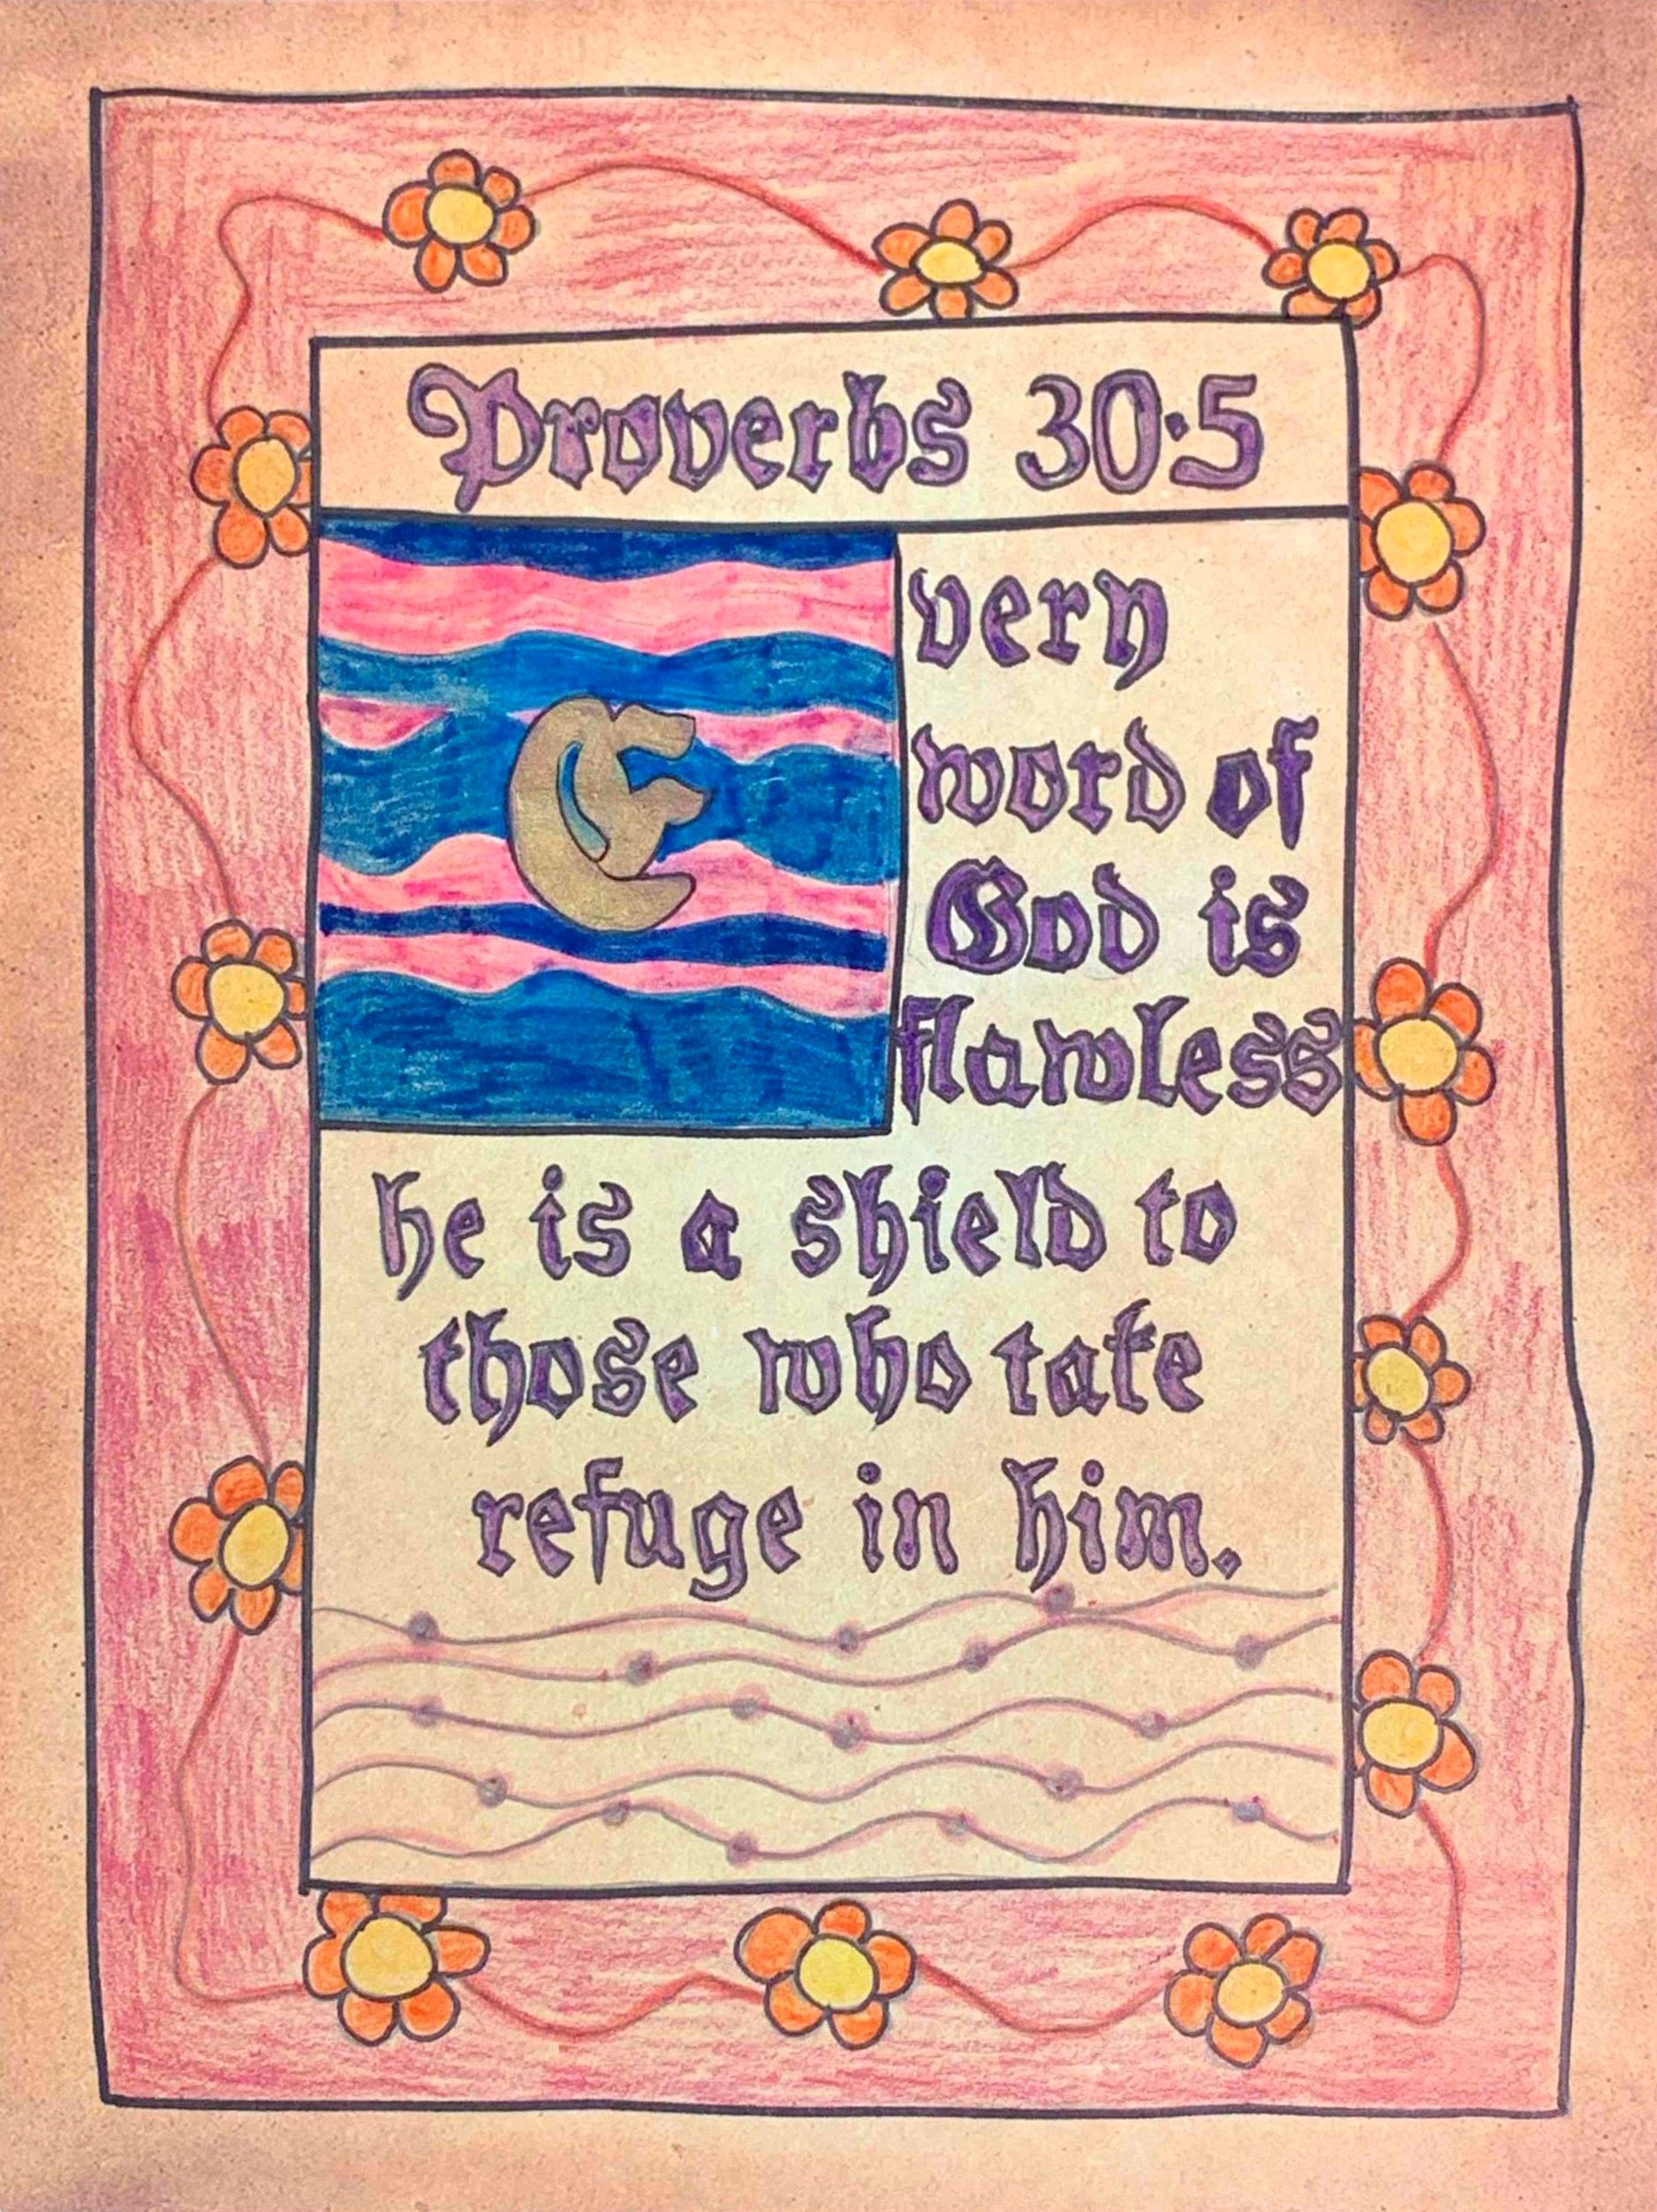 Proverbs 30:5
Every
word of
God is
flawless
he is a shield to
those who take
refuge in him.